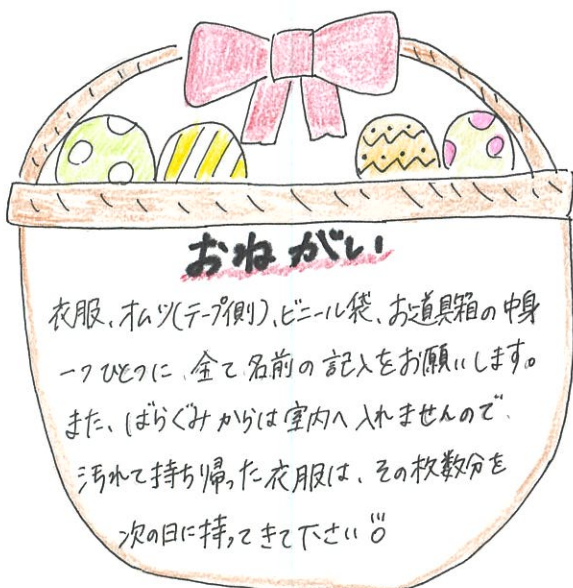 おねがい
衣服、オムツ(テープ側)、ビニール袋、お道具箱の中身
一つひとつに、全て名前の記入をお願いします。
また、ばらぐみからは室内へ入れませんので、
汚れて持ち帰った衣服は、その枚数分を
次の日に持ってきて下さい